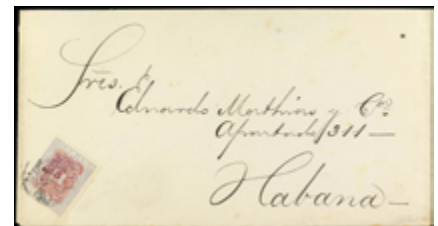 Sres.
Eduardo Matthias y Ca
Apartado 311
Habana